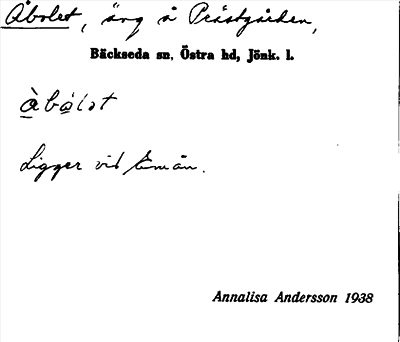 Åbolet, äng å Prästgården,
Bäckseda sn, Östra hd, Jönk. l.
Àbolət
Ligger vid Emån.
Annalisa Andersson 1938